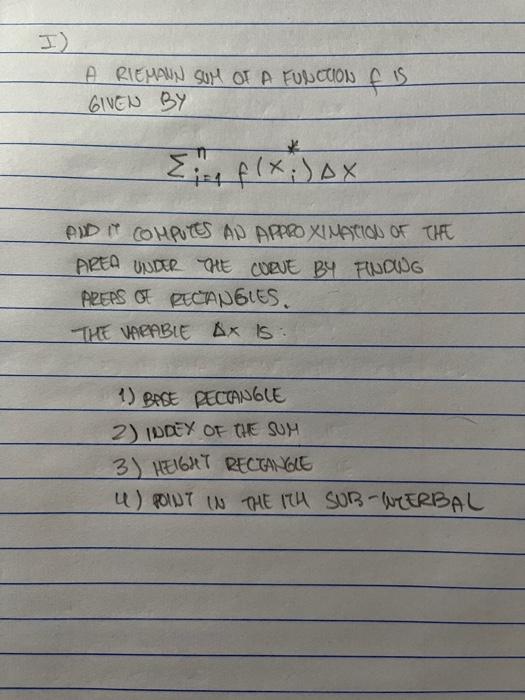 I)
A RIEMANN SUM OF A FUNCTION f IS
GIVEN BY
∑ⁿᵢ₌₁ f(xᵢ*) Δx
AND IT COMPUTES AN APPROXIMATION OF THE
AREA UNDER THE CURVE BY FINDING
AREAS OF RECTANGLES.
THE VARIABLE Δx IS:
1) BASE RECTANGLE
2) INDEX OF THE SUM
3) HEIGHT RECTANGLE
4) POINT IN THE ITH SUB-INTERBAL